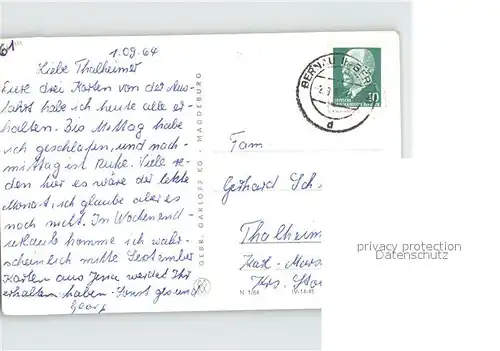 61
1.09.64
Liebe Thalheimer
Eure drei Karten von der Aus-
fahrt habe ich heute alle er-
halten. Bis Mittag habe
ich geschlafen, und nach-
mittag ist Ruhe. Viele re-
den hier es wäre der letzte
Monat, ich glaube aber es
noch nicht. Im Wochenend-
urlaub komme ich wahr-
scheinlich mitte September
Karten aus Jena werdet Ihr
erhalten haben. Sonst gesund
Georg
GEBR. GARLOFF KG · MAGDEBURG
BERNAU
d
10
Fam
Gerhard Sch
Thalheim
Karl-Marx
Krs.
N 1/64 IV-14-45
privacy protection
Datenschutz